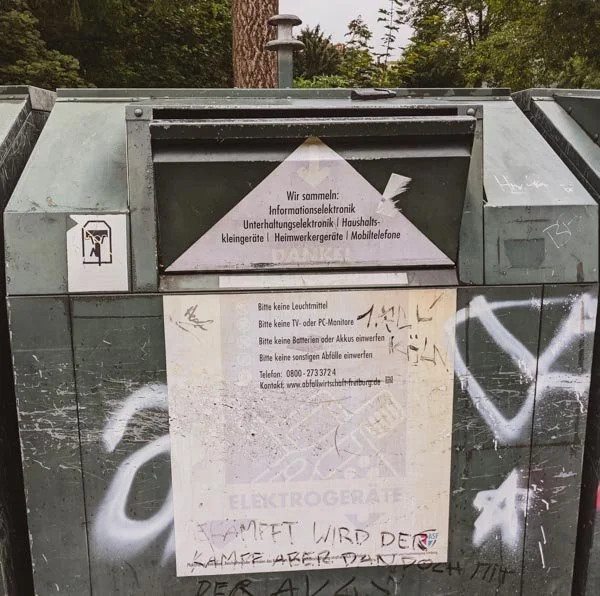 Wir sammeln:
Informationselektronik
Unterhaltungselektronik | Haushalts-
kleingeräte | Heimwerkergeräte | Mobiltelefone
DANKE!
Bitte keine Leuchtmittel
Bitte keine TV- oder PC-Monitore
Bitte keine Batterien oder Akkus einwerfen
Bitte keine sonstigen Abfälle einwerfen
Telefon: 0800 - 273 372 4
Kontakt: www.abfallwirtschaft-freiburg.de
KÖLN
ELEKTROGERÄTE
WIRD DER
KAMPF ABER DANNOCH MIT
DER